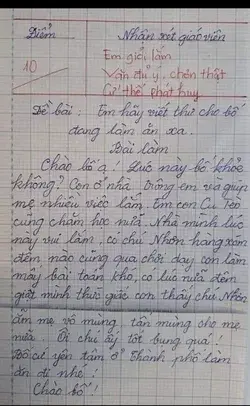 Điểm Nhận xét giáo viên
10
Em giỏi lắm
Văn đủ ý, chân thật
Cứ thế phát huy
Đề bài: Em hãy viết thư cho bố
đang làm ăn xa.
Bài làm
Chào bố ạ. Lúc này bố khỏe
không? Con ở nhà trông em và giúp
mẹ nhiều việc lắm. Em con Cu Teo
cũng chăm học nữa. Nhà mình lúc
này vui lắm, có chú Nhân hàng xóm
đêm nào cũng qua chơi dạy con làm
mấy bài toán khó, có lúc nửa đêm
giật mình thức giấc con thấy chú Nhân
ẵm mẹ vỗ mừng, tấn mùng cho mẹ
nữa. Ôi chú ấy tốt bụng quá!
Bố cứ yên tâm ở Thành phố làm
ăn đi nhé!
Chào bố!